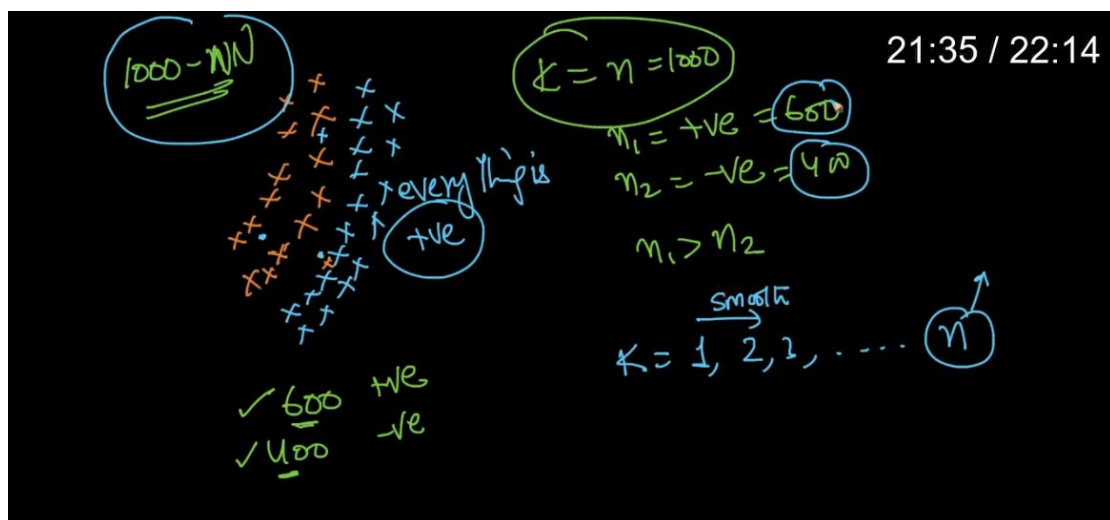 1000-NN
K = n = 1000
21:35 / 22:14
n₁ = +ve = 600
n₂ = -ve = 400
everything is
+ve
n₁ > n₂
smooth
K = 1, 2, 3, ..... n
✓ 600 +ve
✓ 400 -ve